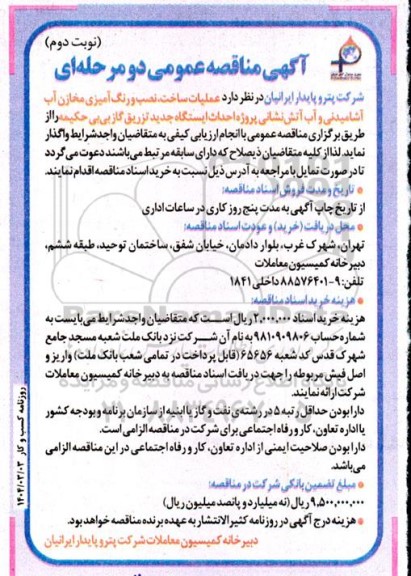 (نوبت دوم)
آگهی مناقصه عمومی دو مرحله‌ای
شرکت پترو پایدار ایرانیان در نظر دارد عملیات ساخت، نصب و رنگ آمیزی مخازن آب
آشامیدنی و آب آتش نشانی پروژه احداث ایستگاه جدید تزریق گاز بی بی حکیمه را از
طریق برگزاری مناقصه عمومی با انجام ارزیابی کیفی به متقاضیان واجد شرایط واگذار
نماید. لذا از کلیه متقاضیان ذیصلاح که دارای سابقه مرتبط می‌باشند دعوت می‌گردد
تا در صورت تمایل با مراجعه به آدرس ذیل نسبت به خرید اسناد مناقصه اقدام نمایند.
تاریخ و مدت فروش اسناد مناقصه:
از تاریخ چاپ آگهی به مدت پنج روز کاری در ساعات اداری
محل دریافت (خرید) و عودت اسناد مناقصه:
تهران، شهرک غرب، بلوار دادمان، خیابان شفق، ساختمان توحید، طبقه ششم،
دبیرخانه کمیسیون معاملات
تلفن: ۹-۸۸۵۷۶۴۰۱ داخلی ۱۸۴۱
هزینه خرید اسناد مناقصه:
هزینه خرید اسناد ۲,۰۰۰,۰۰۰ ریال است که متقاضیان واجد شرایط می‌بایست به
شماره حساب ۹۸۱۰۹۰۹۸۰۶ به نام آن شرکت نزد بانک ملت شعبه مسجد جامع
شهرک قدس کد شعبه ۶۵۶۵۶ (قابل پرداخت در تمامی شعب بانک ملت) واریز و
اصل فیش مربوطه را جهت دریافت اسناد مناقصه به دبیرخانه کمیسیون معاملات
شرکت ارائه نمایند.
دارا بودن حداقل رتبه ۵ در رشته‌ی نفت و گاز یا ابنیه از سازمان برنامه و بودجه کشور
یا اداره تعاون، کار و رفاه اجتماعی برای شرکت در مناقصه الزامی است.
دارا بودن صلاحیت ایمنی از اداره تعاون، کار و رفاه اجتماعی در این مناقصه الزامی
می‌باشد.
مبلغ تضمین بانکی شرکت در مناقصه:
۹,۵۰۰,۰۰۰,۰۰۰ ریال (نه میلیارد و پانصد میلیون ریال)
هزینه درج آگهی در روزنامه کثیرالانتشار به عهده برنده مناقصه خواهد بود.
دبیرخانه کمیسیون معاملات شرکت پترو پایدار ایرانیان
روزنامه کسب و کار ۱۴۰۴/۰۳/۰۳